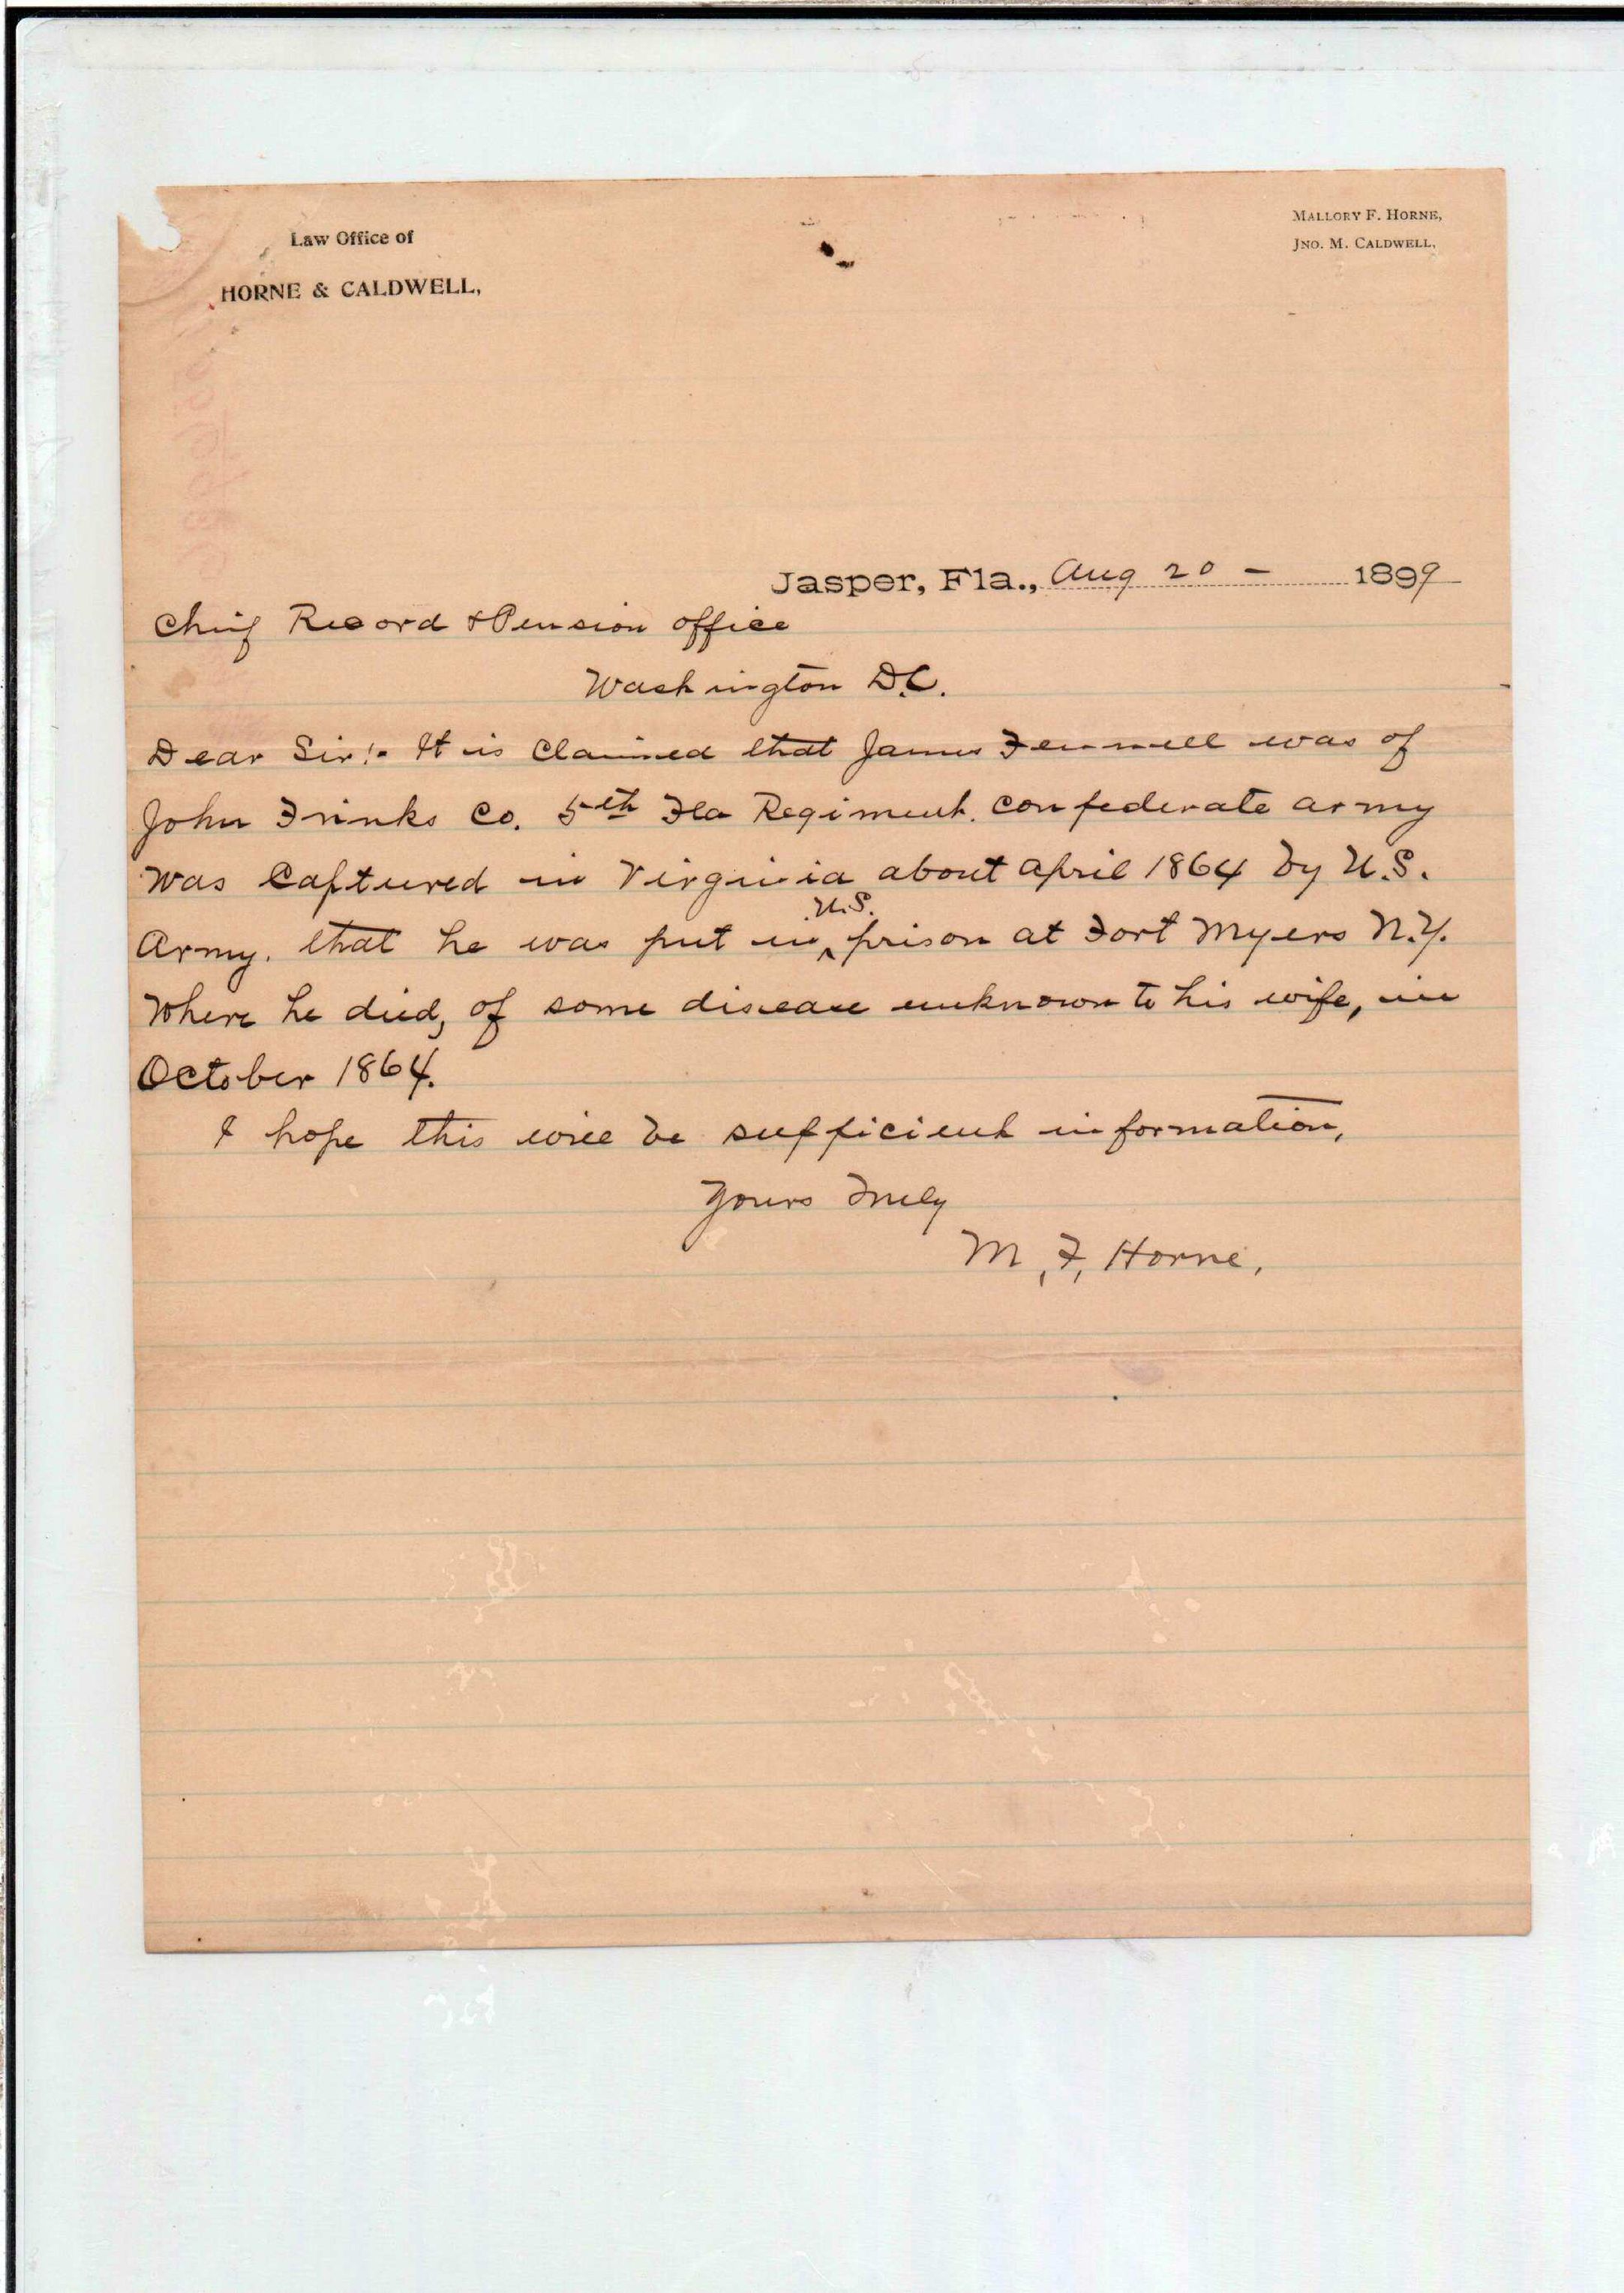 Law Office of
HORNE & CALDWELL,
MALLORY F. HORNE,
JNO. M. CALDWELL,
Jasper, Fla., Aug 20 - 1899
Chief Record & Pension office
Washington D.C.
Dear Sir:- It is Claimed that James Fennell was of
John Frinks Co. 5th Fla Regiment. Confederate army
was Captured in Virginia about April 1864 by U.S.
Army. that he was put in U.S. prison at Fort Myers N.Y.
where he died, of some disease unknown to his wife, in
October 1864.
I hope this will be sufficient information,
Yours Truly
M, F, Horne,